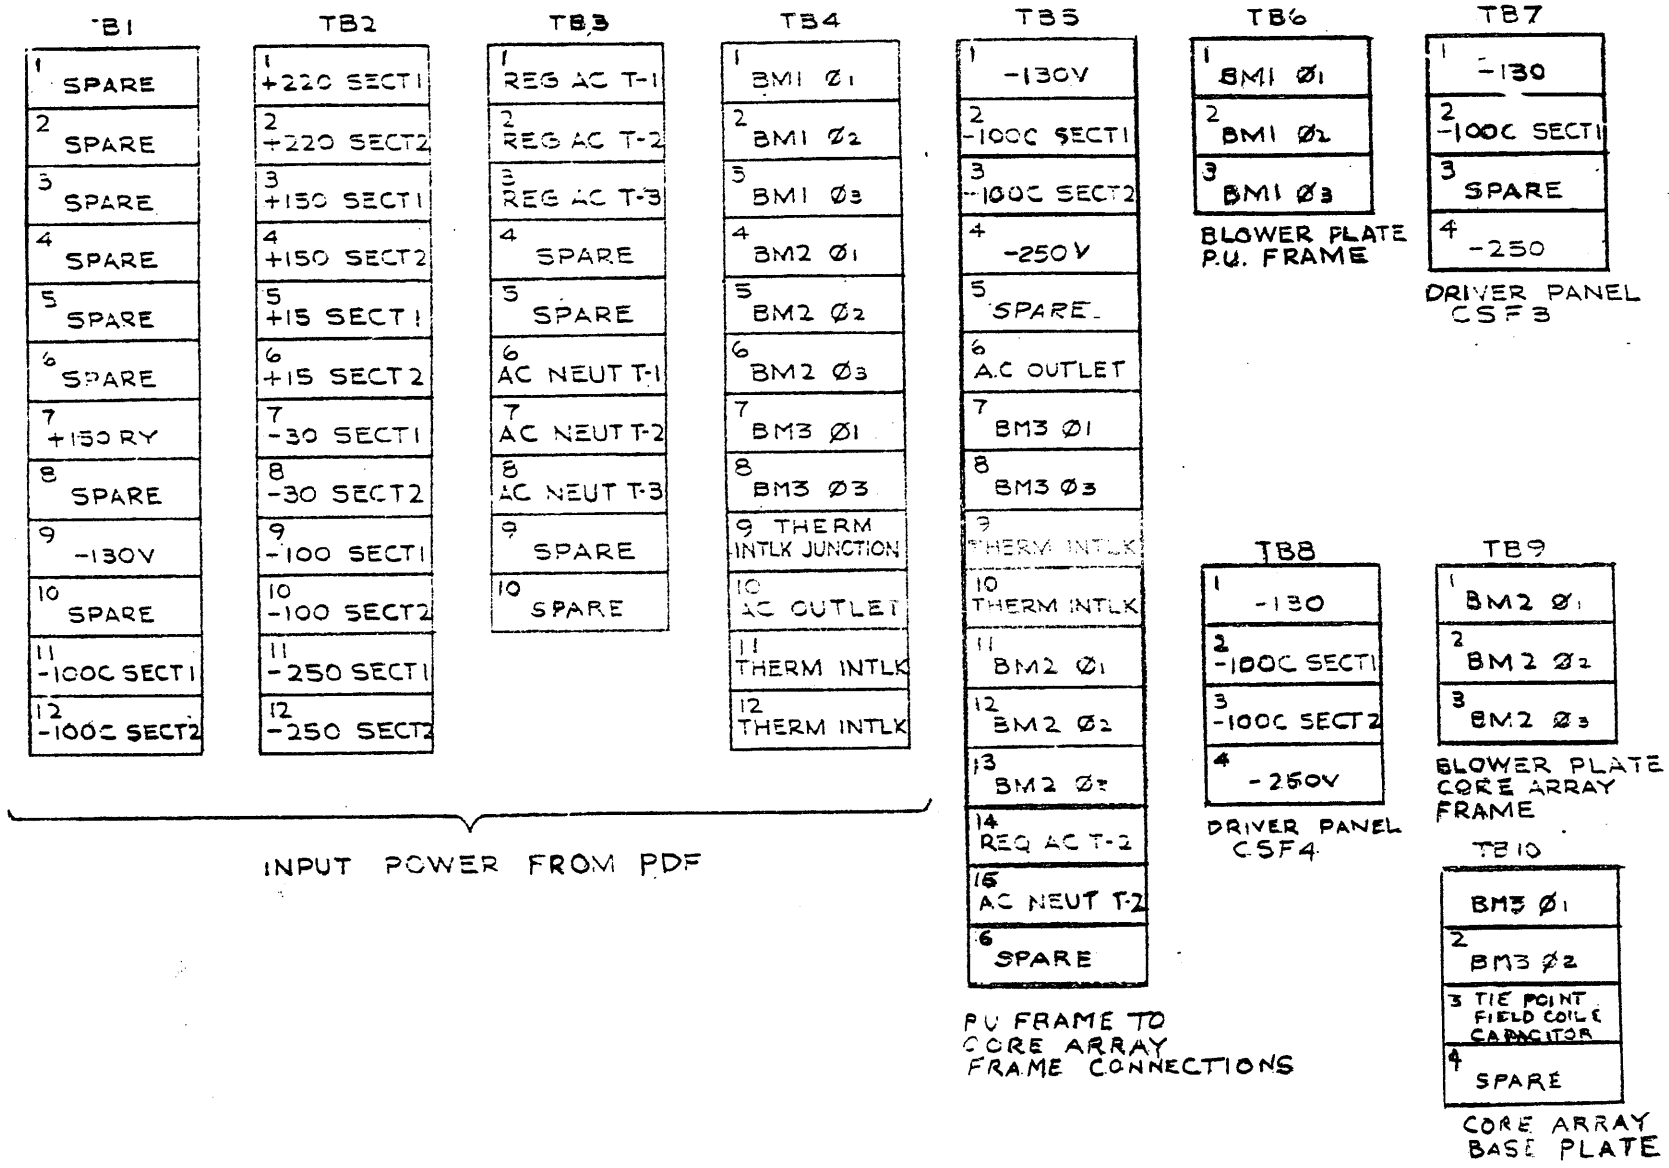 TB1
1
SPARE
2
SPARE
3
SPARE
4
SPARE
5
SPARE
6
SPARE
7
+150 RY
8
SPARE
9
-130V
10
SPARE
11
-100C SECT1
12
-100C SECT2
TB2
1
+220 SECT1
2
+220 SECT2
3
+150 SECT1
4
+150 SECT2
5
+15 SECT1
6
+15 SECT2
7
-30 SECT1
8
-30 SECT2
9
-100 SECT1
10
-100 SECT2
11
-250 SECT1
12
-250 SECT2
TB3
1
REG AC T-1
2
REG AC T-2
3
REG AC T-3
4
SPARE
5
SPARE
6
AC NEUT T-1
7
AC NEUT T-2
8
AC NEUT T-3
9
SPARE
10
SPARE
TB4
1
BM1 Ø1
2
BM1 Ø2
3
BM1 Ø3
4
BM2 Ø1
5
BM2 Ø2
6
BM2 Ø3
7
BM3 Ø1
8
BM3 Ø3
9 THERM
INTLK JUNCTION
10
AC OUTLET
11
THERM INTLK
12
THERM INTLK
INPUT POWER FROM PDF
TB5
1
-130V
2
-100C SECT1
3
-100C SECT2
4
-250V
5
SPARE
6
A.C OUTLET
7
BM3 Ø1
8
BM3 Ø3
9
THERM INTLK
10
THERM INTLK
11
BM2 Ø1
12
BM2 Ø2
13
BM2
14
REQ AC T-2
15
AC NEUT T-2
6
SPARE
PU FRAME TO
CORE ARRAY
FRAME CONNECTIONS
TB6
1
BM1 Ø1
2
BM1 Ø2
3
BM1 Ø3
BLOWER PLATE
P.U. FRAME
TB7
1
-130
2
-100C SECT1
3
SPARE
4
-250
DRIVER PANEL
CSF3
TB8
1
-130
2
-100C SECT1
3
-100C SECT2
4
-250V
DRIVER PANEL
CSF4
TB9
1
BM2 Ø1
2
BM2 Ø2
3
BM2 Ø3
BLOWER PLATE
CORE ARRAY
FRAME
TB10
BM3 Ø1
2
BM3 Ø2
3 TIE POINT
FIELD COIL &
CAPACITOR
4
SPARE
CORE ARRAY
BASE PLATE